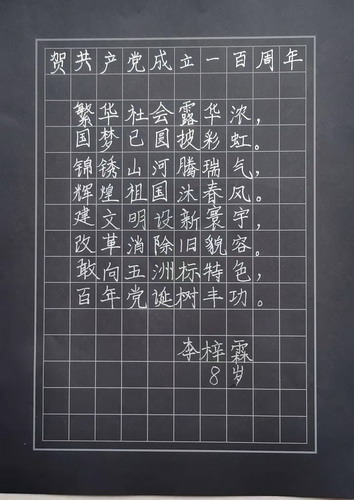 贺共产党成立一百周年
繁华社会露华浓，
国梦已圆披彩虹。
锦锈山河腾瑞气，
辉煌祖国沐春风。
建文明设新寰宇，
改革消除旧貌容。
敢向五洲标特色，
百年党诞树丰功。
李梓霖
8岁